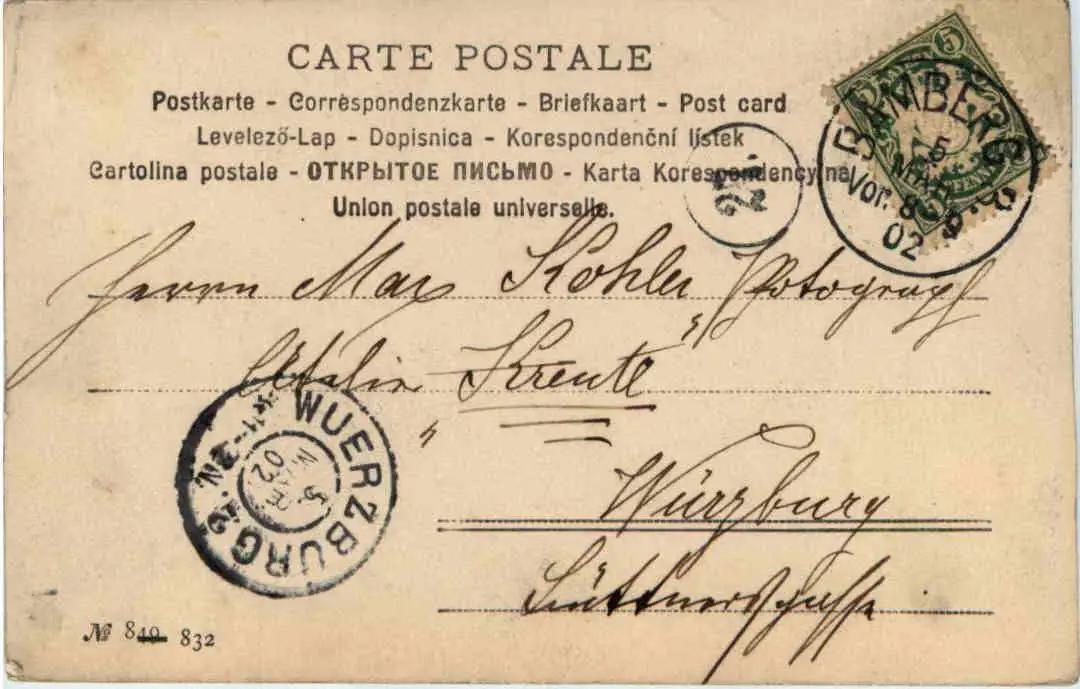 CARTE POSTALE
Postkarte - Correspondenzkarte - Briefkaart - Post card
Levelező-Lap - Dopisnica - Korespondenční lístek
Cartolina postale - ОТКРЫТОЕ ПИСЬМО - Karta Korespondencyjna
Union postale universelle.
5
BAMBERG
5
MAR
Vor. 8-9
02
21.
Herrn Max Kohler Potograpf
"Atelier Kreutz"
WUERZBURG 2.
5
MAR
02
Würzburg
№ 840 832